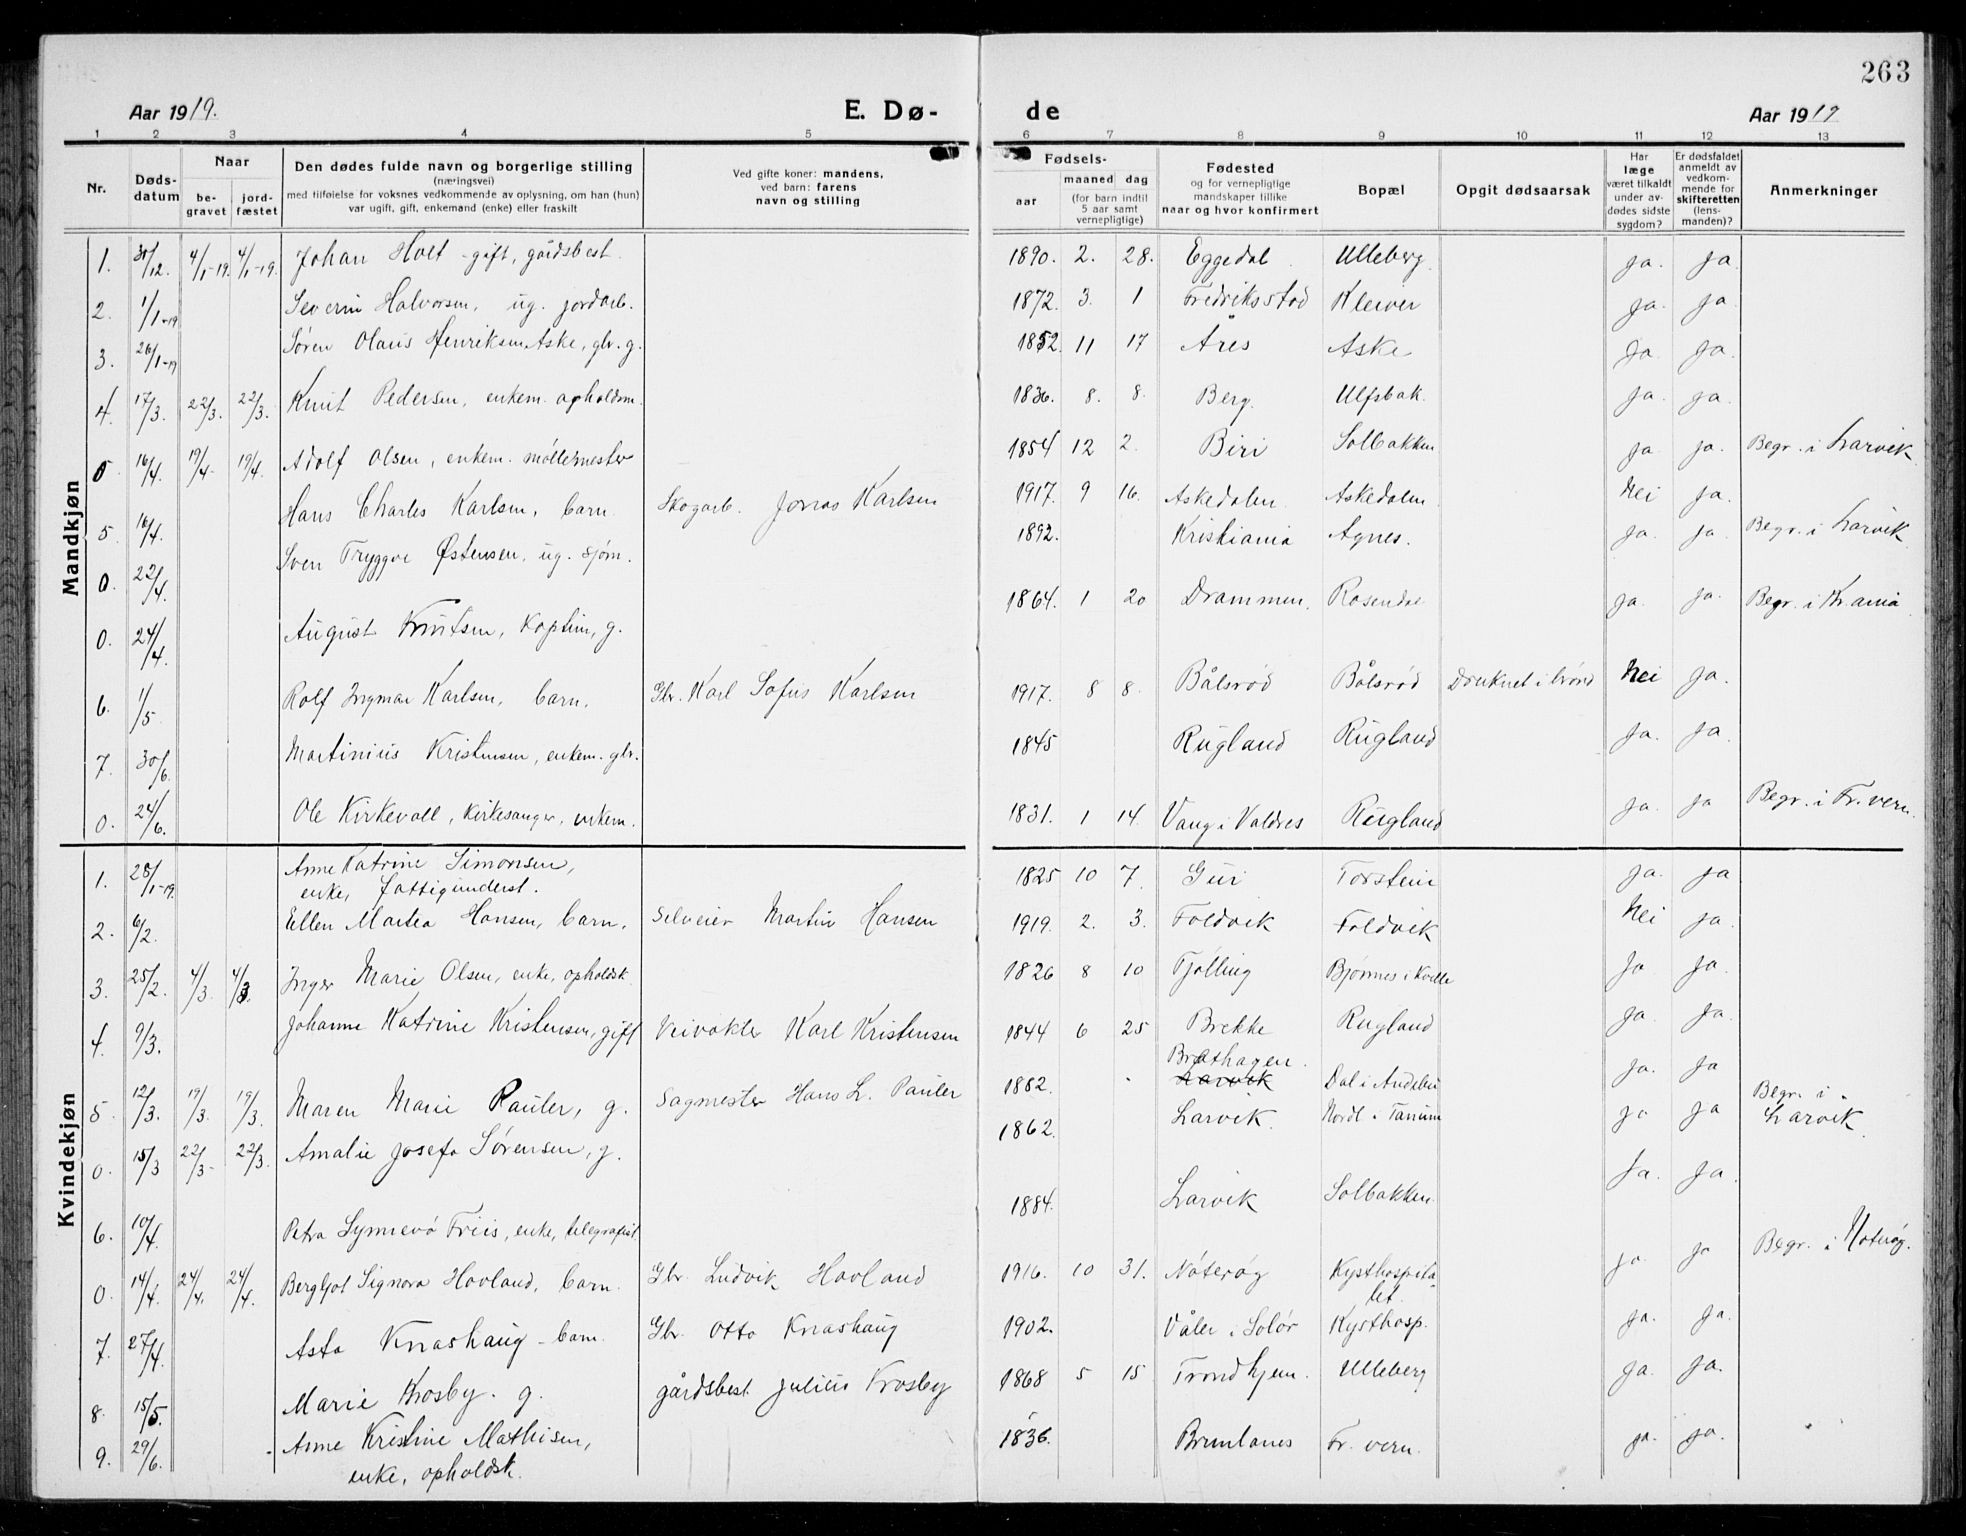 263
Aar 1919. E. Dø- de Aar 1919
1 2 3 4 5 6 7 8 9 10 11 12 13
Nr. Dødsdatum Naar begravet jordfæstet
Den dødes fulde navn og borgerlige stilling
(næringsvei)
med tilføielse for voksnes vedkommende av oplysning, om han (hun)
var ugift, gift, enkemand (enke) eller fraskilt
Ved gifte koner: mandens,
ved barn: farens
navn og stilling
Fødsels- aar maaned dag
(for barn indtil
5 aar samt
vernepligtige)
Fødested
og for vernepligtige
mandskaper tillike
naar og hvor konfirmert
Bopæl
Opgit dødsaarsak
Har
læge
været tilkaldt
under avdødes sidste
sygdom?
Er dødsfaldet
anmeldt av
vedkommende for
skifteretten
(lensmanden)?
Anmerkninger
Mandkjøn
1. 31/12. 4/1-19. 4/1-19. Johan Holt - gift, gårdsbest. 1890. 2. 28. Eggedal Ulleberg. ja. ja.
2. 1/1-19 Severin Halvorsen, ug. jordarb. 1872. 3. 1 Fredriksstad Kleiver ja. ja.
3. 26/1-19 Søren Olaus Henriksen Aske, gbr. g. 1852. 11 17 Åres Aske ja. ja.
4. 17/3. 22/3. 22/3. Knut Pedersen, enkem. opholdsm. 1836. 8. 8. Berg. Ulfsbak. ja. ja.
0 16/4. 19/4. 19/4. Adolf Olsen, enkem. møllemester 1854 12 2. Biri Solbakken ja. ja. Begr. i Larvik.
5. 16/4. Hans Charles Karlsen, barn. Skogarb. Jonas Karlsen 1917. 9 16. Askedalen Askedalen Nei ja.
0. 22/4. Sven Tryggve Østensen, ug. sjøm. 1892. Kristiania Agnes. ja. ja. Begr. i Larvik.
0. 24/4. August Knutsen, kaptein, g. 1864. 1 20 Drammen. Rosendal ja. ja. Begr. i Kr.ania
6. 1/5. Rolf Ingmar Karlsen, barn. Gbr. Karl Sofus Karlsen 1917. 8 8. Bålsrød Bålsrød Druknet i brønd Nei ja.
7. 30/6. Martinius Kristensen, enkem. gbr. 1845 Rugland Rugland ja. ja.
0. 24/6. Ole Kirkevoll, kirkesanger, enkem. 1831. 1 14. Vang i Valdres Rugland ja. ja Begr. i Fr.vern.
Kvindekjøn
1. 28/1-19. Anne Katrine Simonsen,
enke, fattigunderst. 1825 10 7. Guri Torstein ja. ja
2. 6/2. Ellen Martea Hansen, barn. Selveier Martin Hansen 1919. 2. 3. Foldvik Foldvik Nei ja.
3. 25/2. 4/3. 4/3. Inger Marie Olsen, enke, opholdsk. 1826 8 10 Tjølling Bjønnes i Kville ja ja.
4. 9/3. Johanne Katrine Kristensen, gift Veivokter Karl Kristensen 1844 6 25 Brekke Rugland ja. ja.
5. 12/3. 19/3. 19/3. Maren Marie Pauler, g. Sagmester Hans L. Pauler 1882. Brathagen. Larvik Dal i Andebu ja. ja
0. 15/3 22/3- 22/3. Amalie Josefa Sørensen, g. 1862. Larvik. Nordl. Tanum ja ja Begr. i
Larvik.
6. 10/4. Petra Synnevø Friis, enke, telegrafist. 1884. Larvik Solbakken. ja. ja.
0. 14/4. 24/4. 24/4. Bergljot Signora Hovland, barn. Gbr. Ludvik Hovland 1916. 10 31. Nøterøy Kysthospitalet. ja ja Begr. i Nøterøy.
7. 27/4. Asta Knashaug - barn. Gbr. Otto Knashaug 1902. Våler i Solør Kysthosp. ja. ja.
8. 15/5. Marie Krosby. g. gårdsbest. Julius Krosby 1868 5 15 Trondhjem. Ulleberg ja. ja.
9. 29/6. Anne Kristine Mathisen,
enke, opholdsk. 1836. Brunlanes Fr. vern. ja. ja.